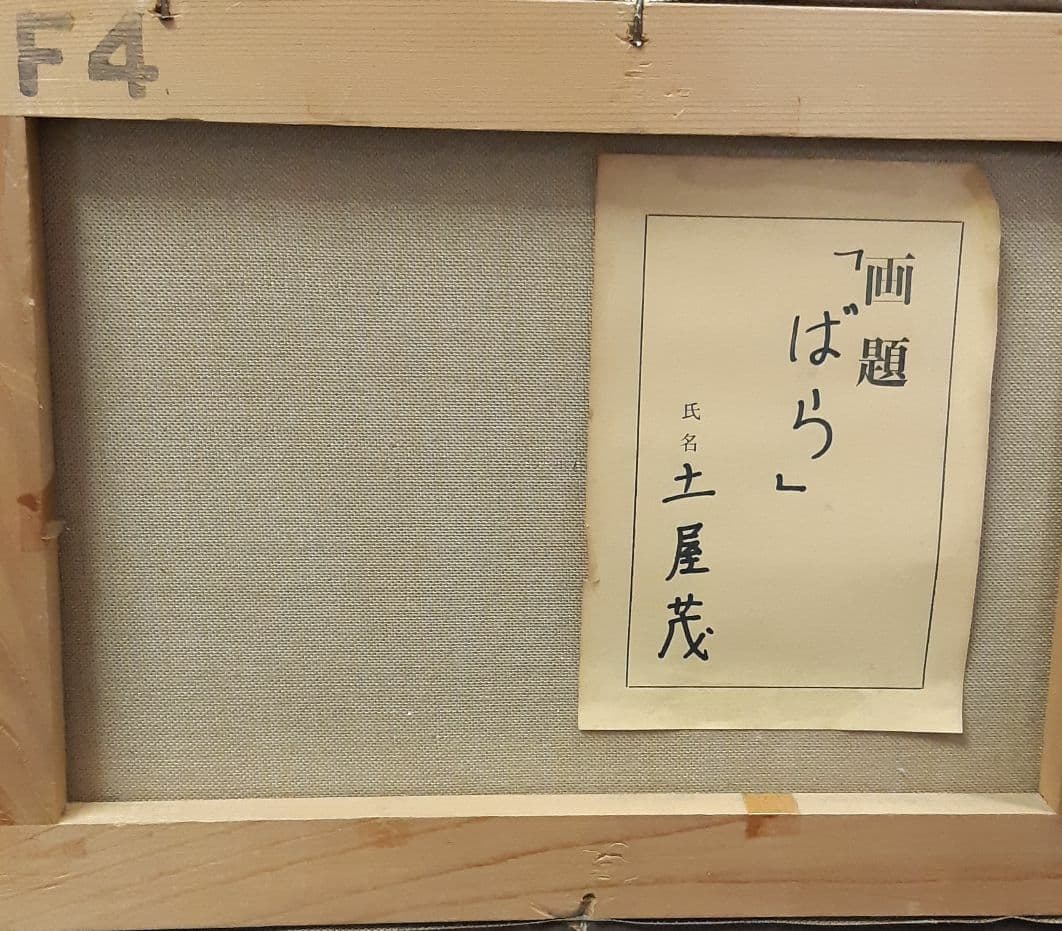 F4
画題
「ばら」
氏名 土屋茂